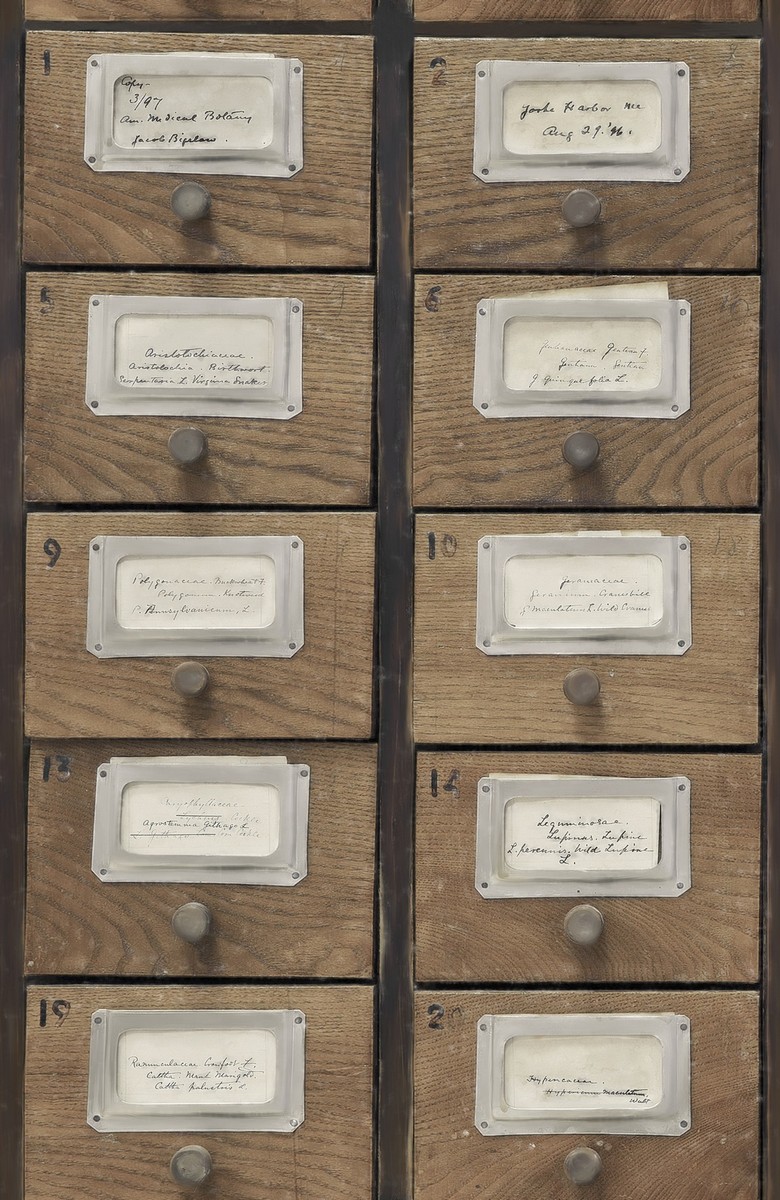 1
Copy-
3/97
Am. Medical Botany
Jacob Bigelow.
2
Harbor Me
Aug 29. '96.
5
Aristolochiaceae.
Aristolochia. Birthwort
Serpentaria L. Virginia Snaker
6
G quinquefolia L.
9
Polygonaceae. Buckwheat F
Polygonum. Knotweed
P. Pennsylvanicum, L.
10
Geraniaceae.
Geranium. Cranesbill
G Maculatum L. Wild Cranes
13
Agrostemma Githago L
14
Leguminosae.
Lupinus. Lupine
L. perennis. Wild Lupine
L.
19
Ranunculaceae Crowfoot F.
Caltha Marsh Marigold.
Caltha palustris L.
20
Hypericaceae.
Hypericum maculatum,
Walt